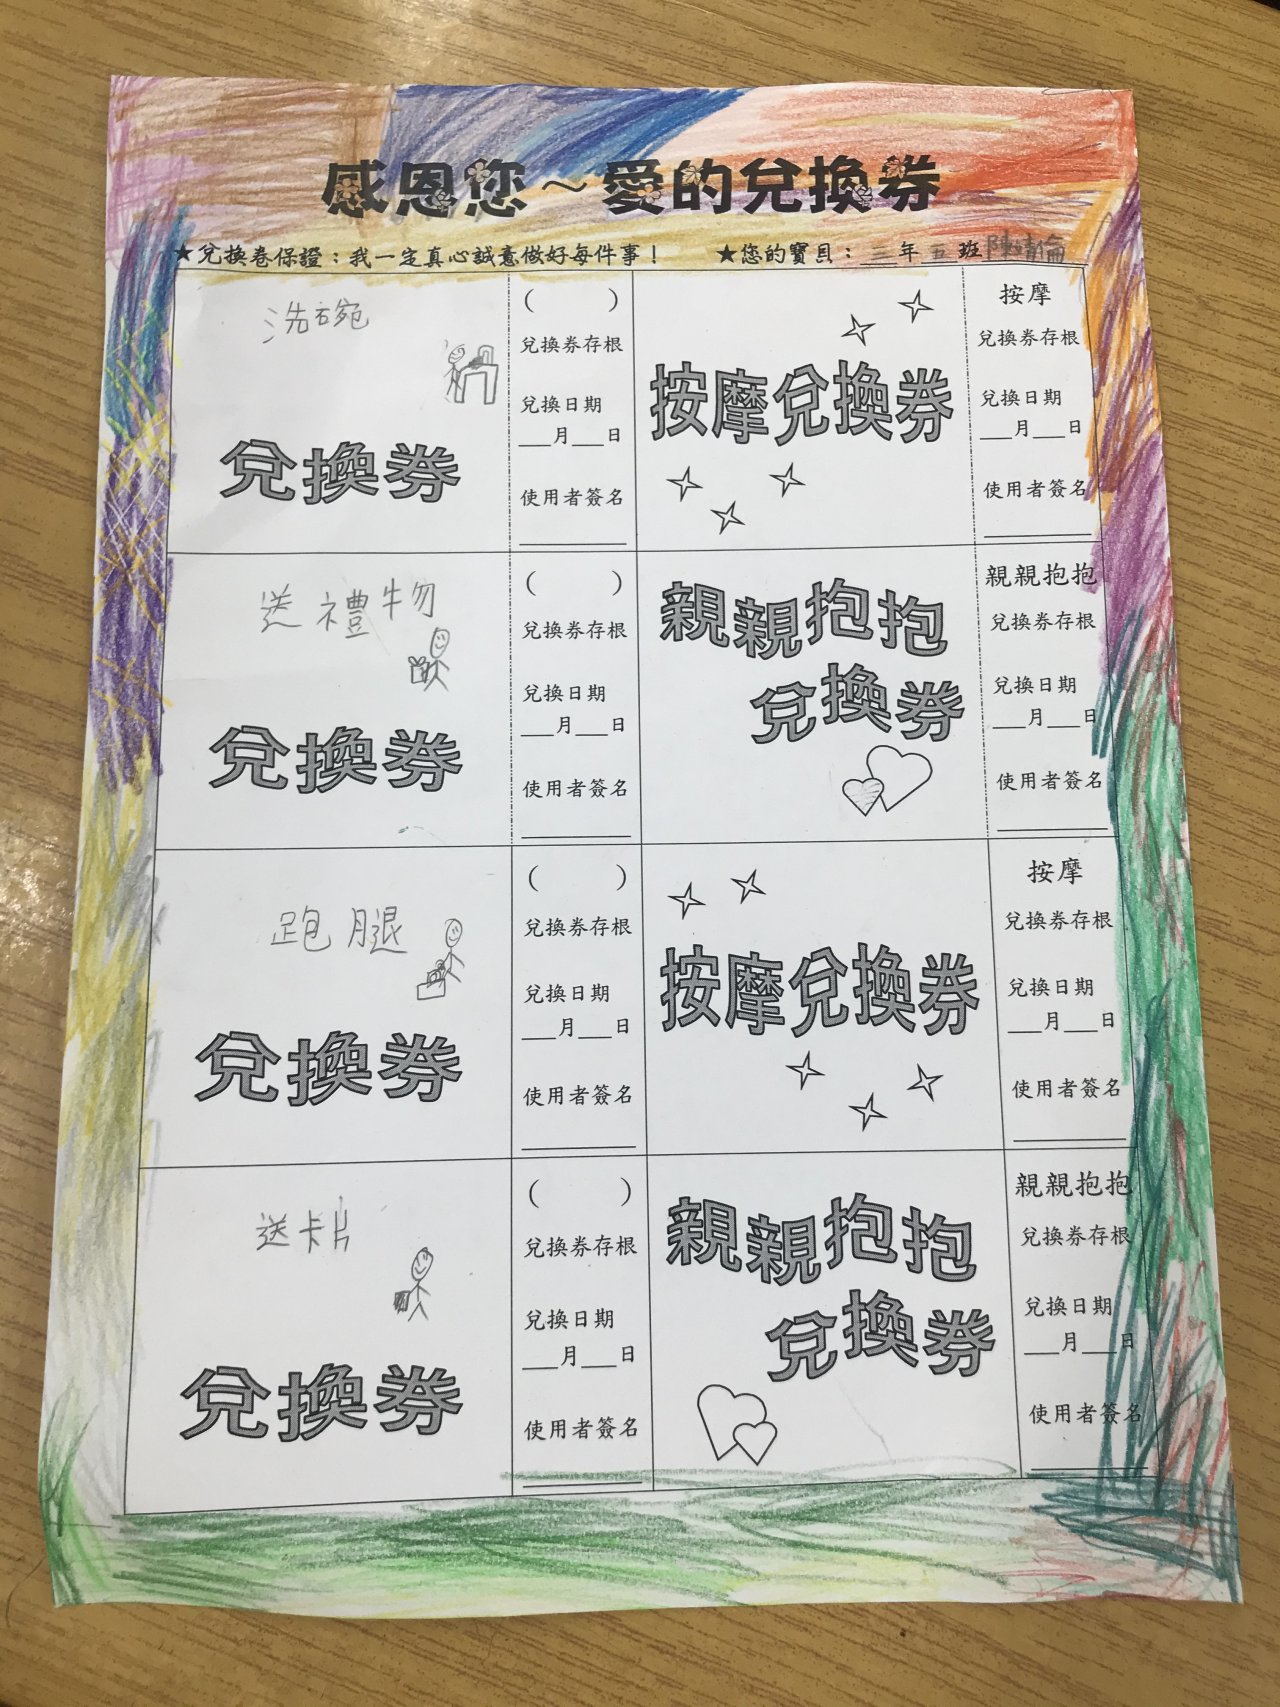 感恩您～愛的兌換券
★兌換卷保證：我一定真心誠意做好每件事！ ★您的寶貝：三年五班
洗碗
兌換券
( )
兌換券存根
兌換日期
___月___日
使用者簽名
按摩兌換券
按摩
兌換券存根
兌換日期
___月___日
使用者簽名
送禮物
兌換券
( )
兌換券存根
兌換日期
___月___日
使用者簽名
親親抱抱
兌換券
親親抱抱
兌換券存根
兌換日期
___月___日
使用者簽名
跑腿
兌換券
( )
兌換券存根
兌換日期
___月___日
使用者簽名
按摩兌換券
按摩
兌換券存根
兌換日期
___月___日
使用者簽名
送卡片
兌換券
( )
兌換券存根
兌換日期
___月___日
使用者簽名
親親抱抱
兌換券
親親抱抱
兌換券存根
兌換日期
___月___日
使用者簽名